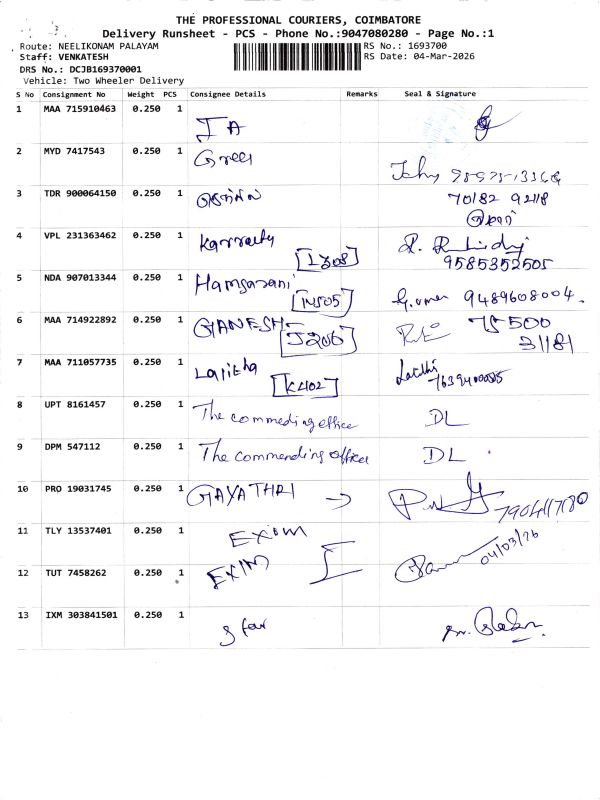 THE PROFESSIONAL COURIERS, COIMBATORE
Delivery Runsheet - PCS - Phone No.:9047080280 - Page No.:1
Route: NEELIKONAM PALAYAM RS No.: 1693700
Staff: VENKATESH RS Date: 04-Mar-2026
DRS No.: DCJB169370001
Vehicle: Two Wheeler Delivery
S No Consignment No Weight PCS Consignee Details Remarks Seal & Signature
1 MAA 715910463 0.250 1
2 MYD 7417543 0.250 1
3 TDR 900064150 0.250 1 70182 92118
4 VPL 231363462 0.250 1 9585352505
5 NDA 907013344 0.250 1 Hamsarani 9489608004.
6 MAA 714922892 0.250 1 GANESH J206 75500
31181
7 MAA 711057735 0.250 1 Lalitha K402
8 UPT 8161457 0.250 1 The commeding office DL
9 DPM 547112 0.250 1 The commending officer DL
10 PRO 19031745 0.250 1 GAYATHRI →
11 TLY 13537401 0.250 1 EXIM 04/03/26
12 TUT 7458262 0.250 1 EXIM
13 IXM 303841501 0.250 1 star